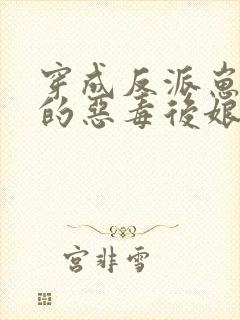 穿成反派崽
的恶毒後娘
宫非雪